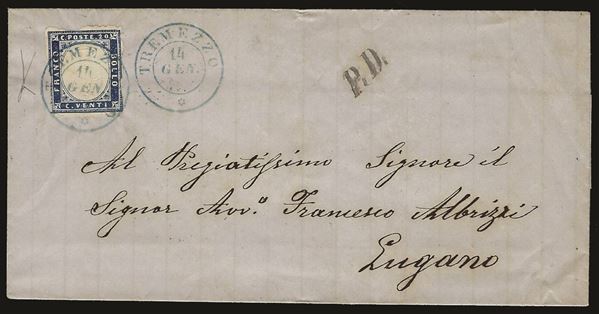 C. POSTE. 20
FRANCO
BOLLO
C. VENTI
TREMEZZO
14
GEN.
TREMEZZO
14
GEN.
P.D.
Al Pregiatissimo Signore il
Signor Avv.º Francesco Albrizzi
Lugano